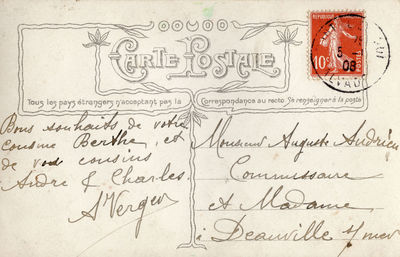 CARTE POSTALE
RÉPUBLIQUE FRANÇAISE
10c
POSTES
5
08
CALVADOS
Tous les pays étrangers n'acceptant pas la Correspondance au recto. Se renseigner à la poste
Bons souhaits de votre
cousine Berthe, et
de vos cousins
André & Charles
A Verger
Monsieur Auguste Andrieu
Commissaire
et Madame
à Deauville s/mer